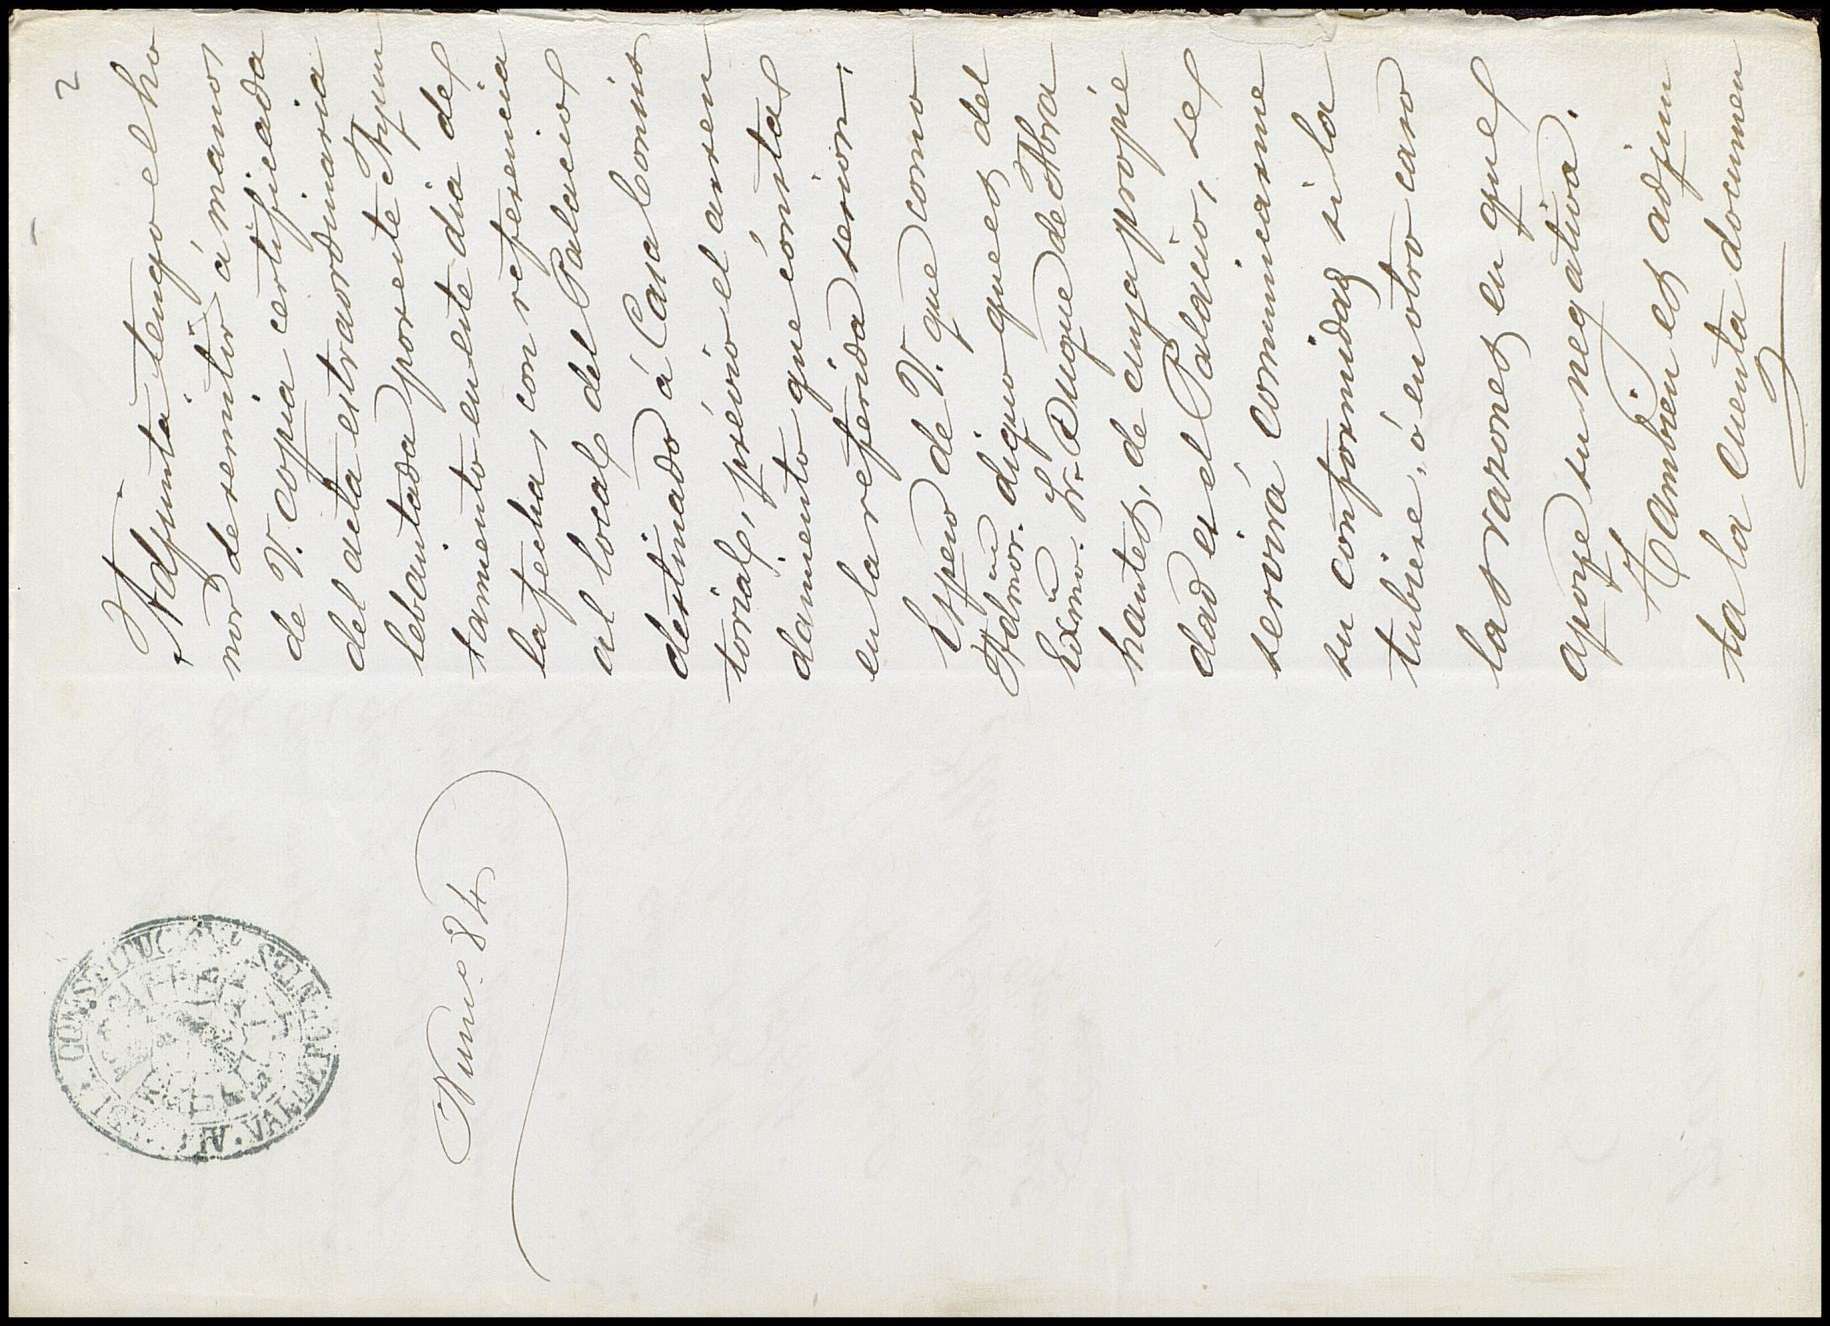 2
Adjunta tengo el ho
nor de remitir á manos
de V. copia certificada
del acta estraordinaria
lebantada por este Ayun
tamiento en este dia de
la fecha, con referencia
al local del Palacio
destinado á Casa Consis
torial, prévio el arren
damiento que consta
en la referida sesion.
Espero de V. que como
Admor. digno que es del
Exmo. Sr. Duque de Abra
hantes, de cuya propie
dad es el Palacio, se
servirá comunicarme
su conformidad si la
tubiese, ó en otro caso
las razones en que
apoye su negativa.
Tambien es adjun
ta la cuenta documen
Num.º 84
CONSTITUCIONAL